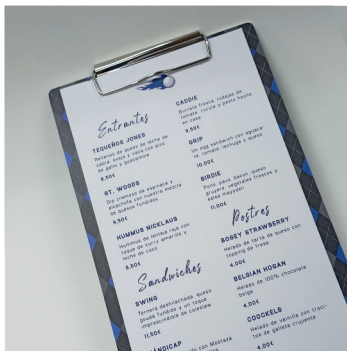 Entrantes
TEQUEÑOS JONES
Rellenos de queso de leche de
cabra, oveja y vaca con pico
de gallo y guacamole
8.50€
ST. WOODS
Dip cremoso de espinaca y
alcachofa con nuestra mezcla
de quesos fundidos
9.50€
HUMMUS NICKLAUS
Hummus de lenteja roja con
toque de curry amarillo y
leche de coco
8.50€
Sandwiches
SWING
Ternera deshilachada, queso
gouda fundido y un toque
imprescindible de coleslaw
11.50€
HÁNDICAP
con Mostaza
CADDIE
Burrata fresca, rodajas de
tomate, rucula y pesto hecho
en casa
9.50€
GRIP
Un egg sandwich con aguaca-
te, tomate, lechuga y queso
10.00€
BIRDIE
Pollo, pavo, bacon, queso
gruyere, vegetales frescos y
salsa mayodeli
11.00€
Postres
BOGEY STRAWBERRY
Helado de tarta de queso con
topping de fresa
4.00€
BELGIAN HOGAN
Helado de 100% chocolate
belga
4.00€
COOCKELS
Helado de vainilla con troci-
tos de galleta crujiente
4.00€